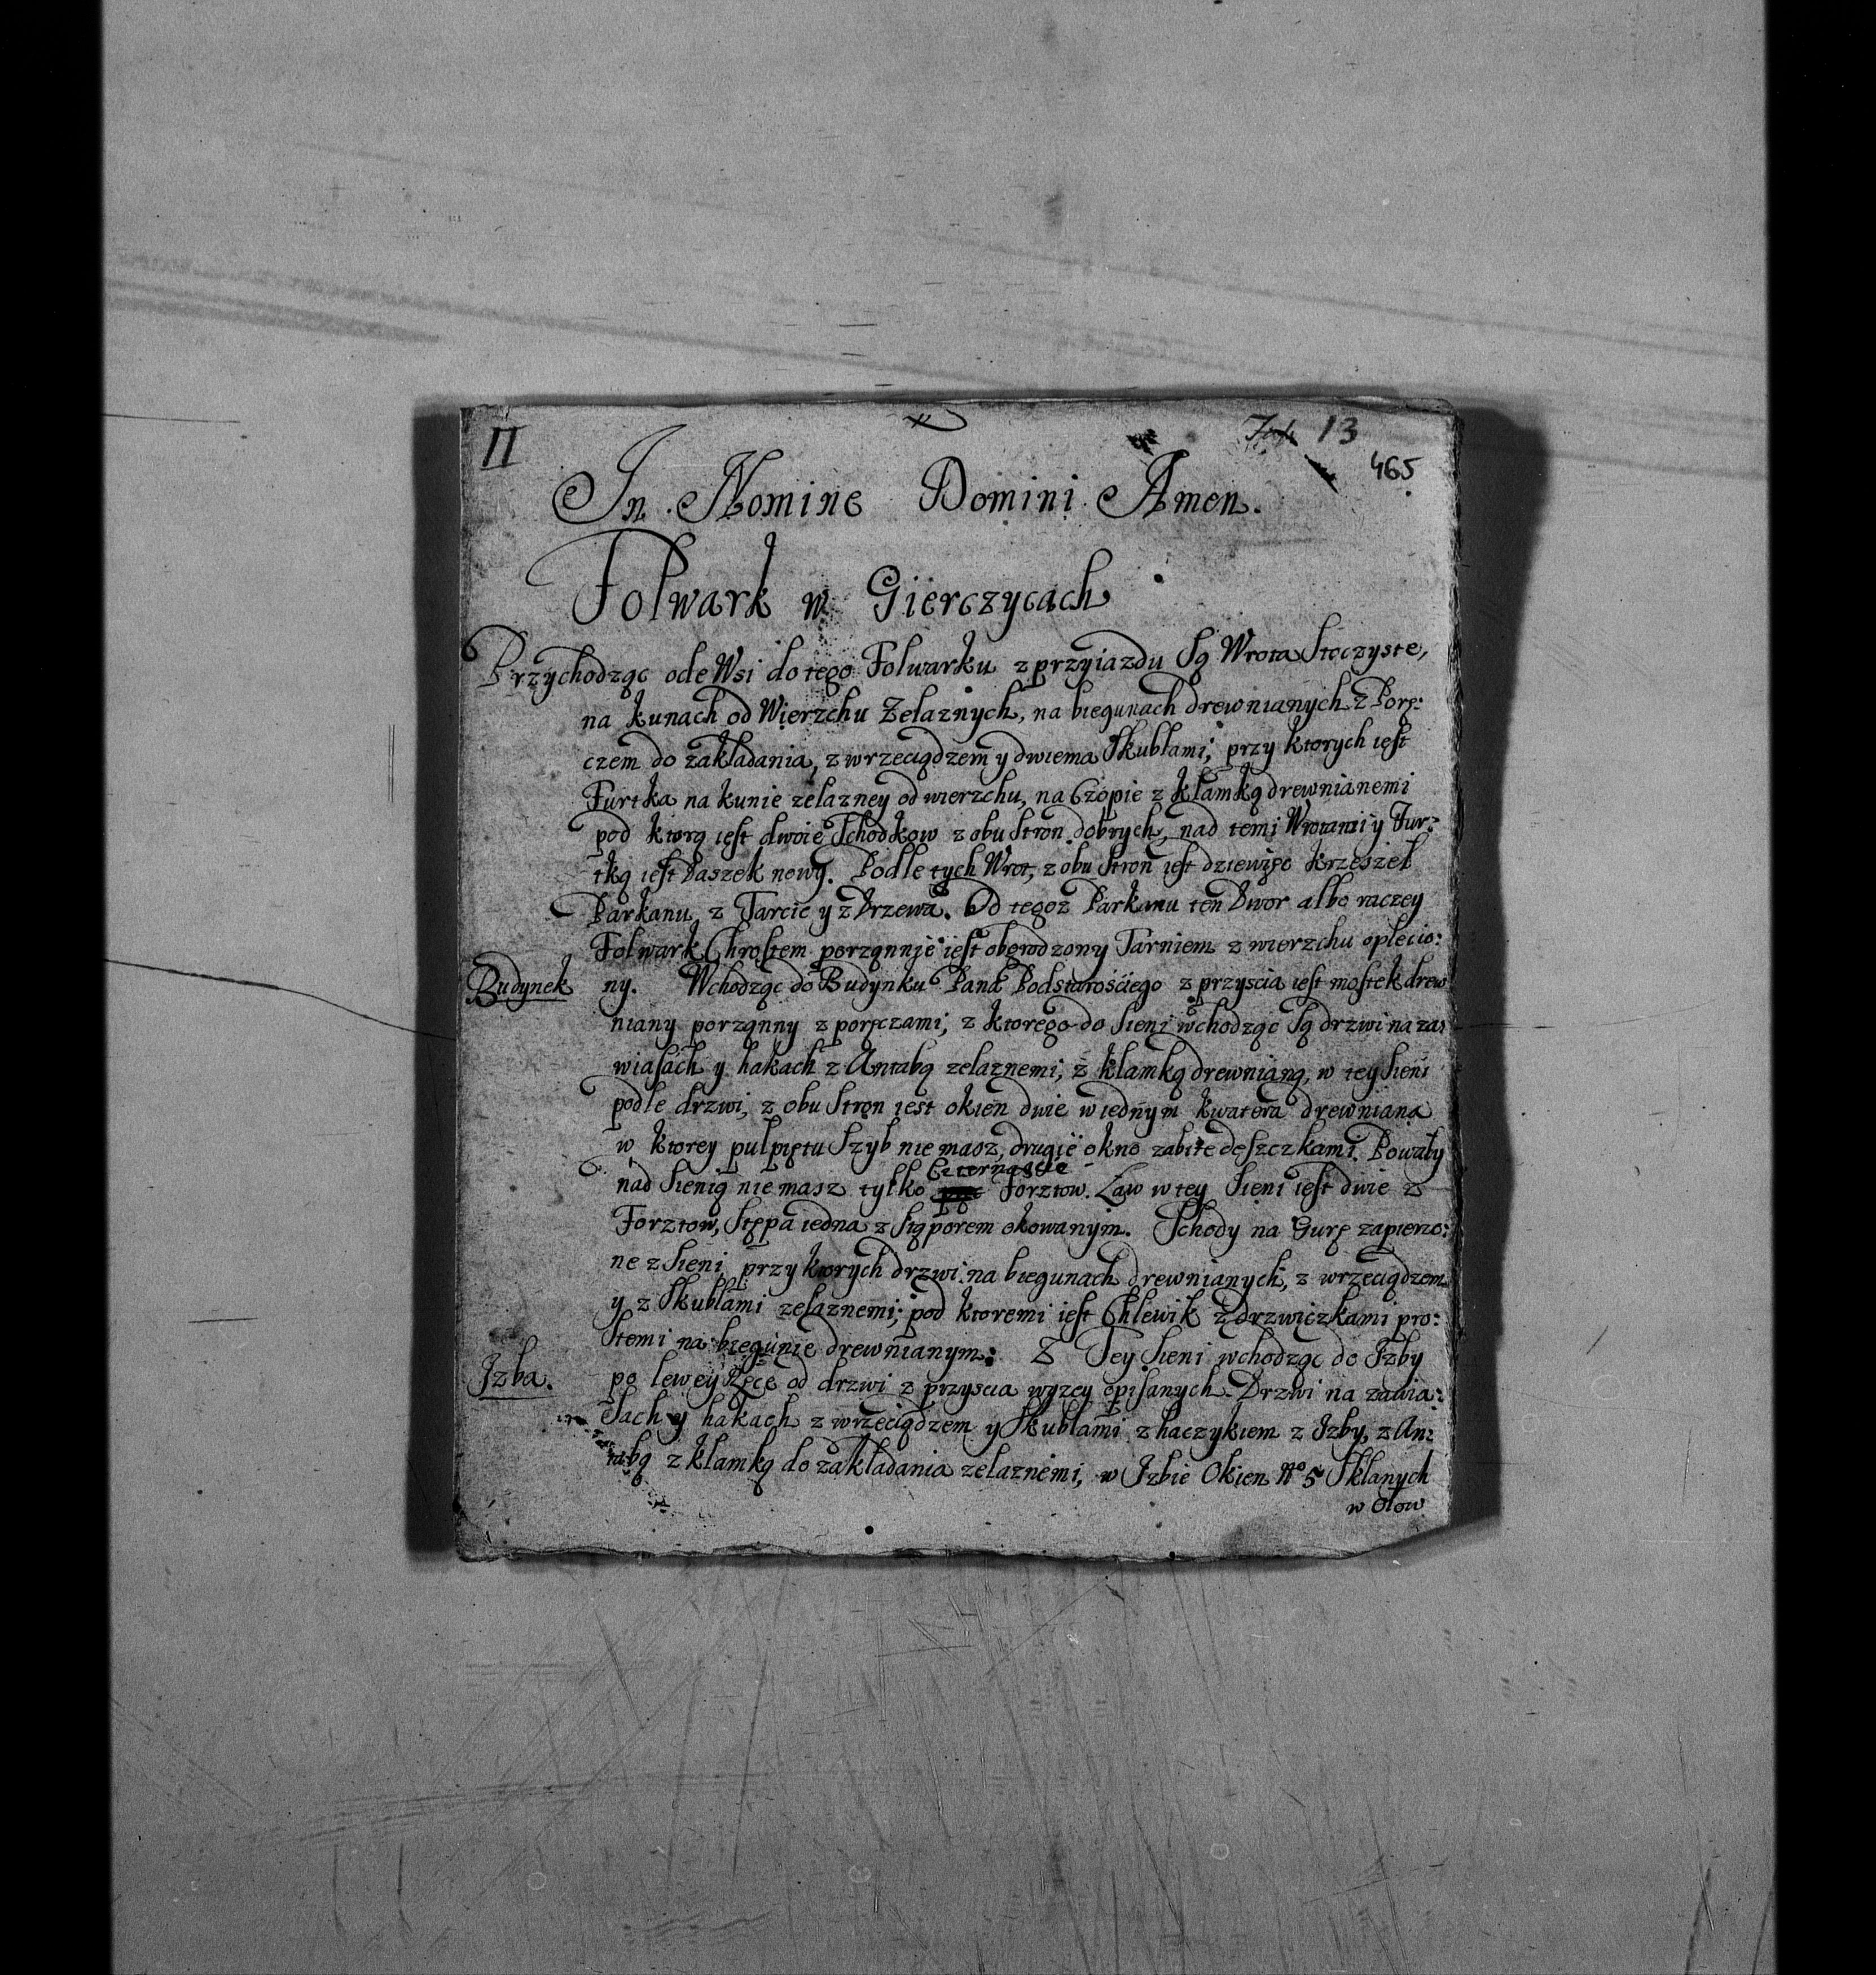 II
13
465
In Nomine Domini Amen.
Folwark w Gierczycach
Przychodząc ode Wsi do tego Folwarku z przyiazdu Są Wrota Stoczyste,
na kunach od Wierzchu Zelaznych, na biegunach drewnianych z Porę:
czem do zakładania, z wrzeciądzem y dwiema Skublami; przy ktorych iest
Furtka na kunie zelazney od wierzchu, na Czopie z klamką drewnianemi
pod ktorą iest dwoie Schodkow z obu Stron dobrych, nad temi Wrotami y Fur:
tką iest Daszek nowy. Podle tych Wrot, z obu Stron iest dziewięc krzeszel
Parkanu z Tarcic y z Drzewa. Od tegoz Parkanu ten Dwor albo raczey
Folwark Chrostem porządnie iest obgrodzony Tarniem z wierzchu oplecio:
Budynek ny. Wchodząc do Budynku Pana Podstarościego z przyscia iest mostek drew
niany porządny z poręczami; z ktorego do Sieni wchodząc Są drzwi na za:
wiasach y hakach z Antabą zelaznemi; z klamką drewnianą, w tey Sieni
podle drzwi, z obu Stron iest okien dwie w iednym kwatera drewniana
w ktorey pułpiętu Szyb nie masz, drugie okno zabite deszczkami. Powały
Czternaście
nad Sienią nie masz tylko Forztow. Ław w tey Sieni iest dwie z
Forztow, Stępa iedna z Stąporem okowanym. Schody na Gurę zapierzo:
ne z Sieni przy ktorych drzwi na biegunach drewnianych, z wrzeciądzem
y z Skublami zelaznemi; pod ktoremi iest Chlewik z drzwiczkami pro:
stemi na biegunie drewnianym: Z Tey Sieni wchodząc do Izby
Izba. po lewey Ręce od drzwi z przyscia wyzey opisanych Drzwi na zawia:
sach y hakach z wrzeciądzem y Skublami z haczykiem z Izby, z An:
tabą z klamką do zakładania zelaznemi, w Izbie Okien No 5 Sklanych
w Ołow